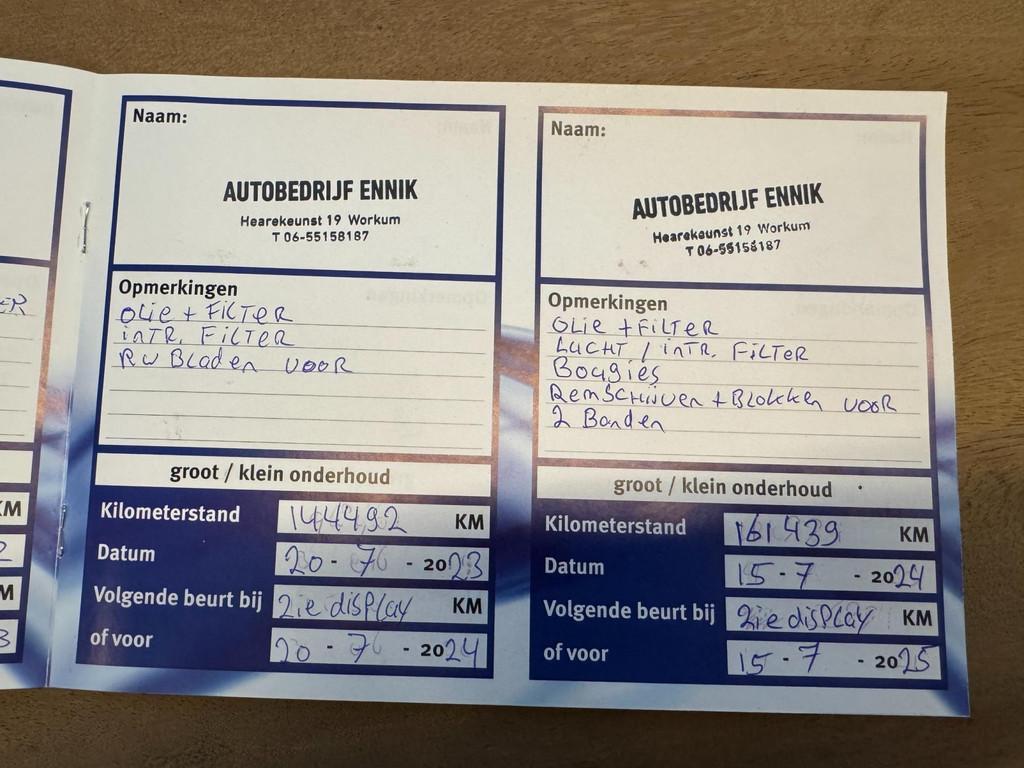 ER
KM
2
M
3
Naam:
AUTOBEDRIJF ENNIK
Hearekeunst 19 Workum
T 06-55158187
Opmerkingen
OLie + FiLTeR
inTR. FiLTeR
RW BLaden VOOR
groot / klein onderhoud
Kilometerstand 144492 KM
Datum 20 - 7 - 2023
Volgende beurt bij Zie disPLay KM
of voor 20 - 7 - 2024
Naam:
AUTOBEDRIJF ENNIK
Hearekeunst 19 Workum
T 06-55158187
Opmerkingen
OLie + FiLTeR
LUCHT / inTR. FiLTeR
Bougies
RemSCHijven + BLOkken VOOR
2 Banden
groot / klein onderhoud
Kilometerstand 161439 KM
Datum 15 - 7 - 2024
Volgende beurt bij Zie disPLay KM
of voor 15 - 7 - 2025